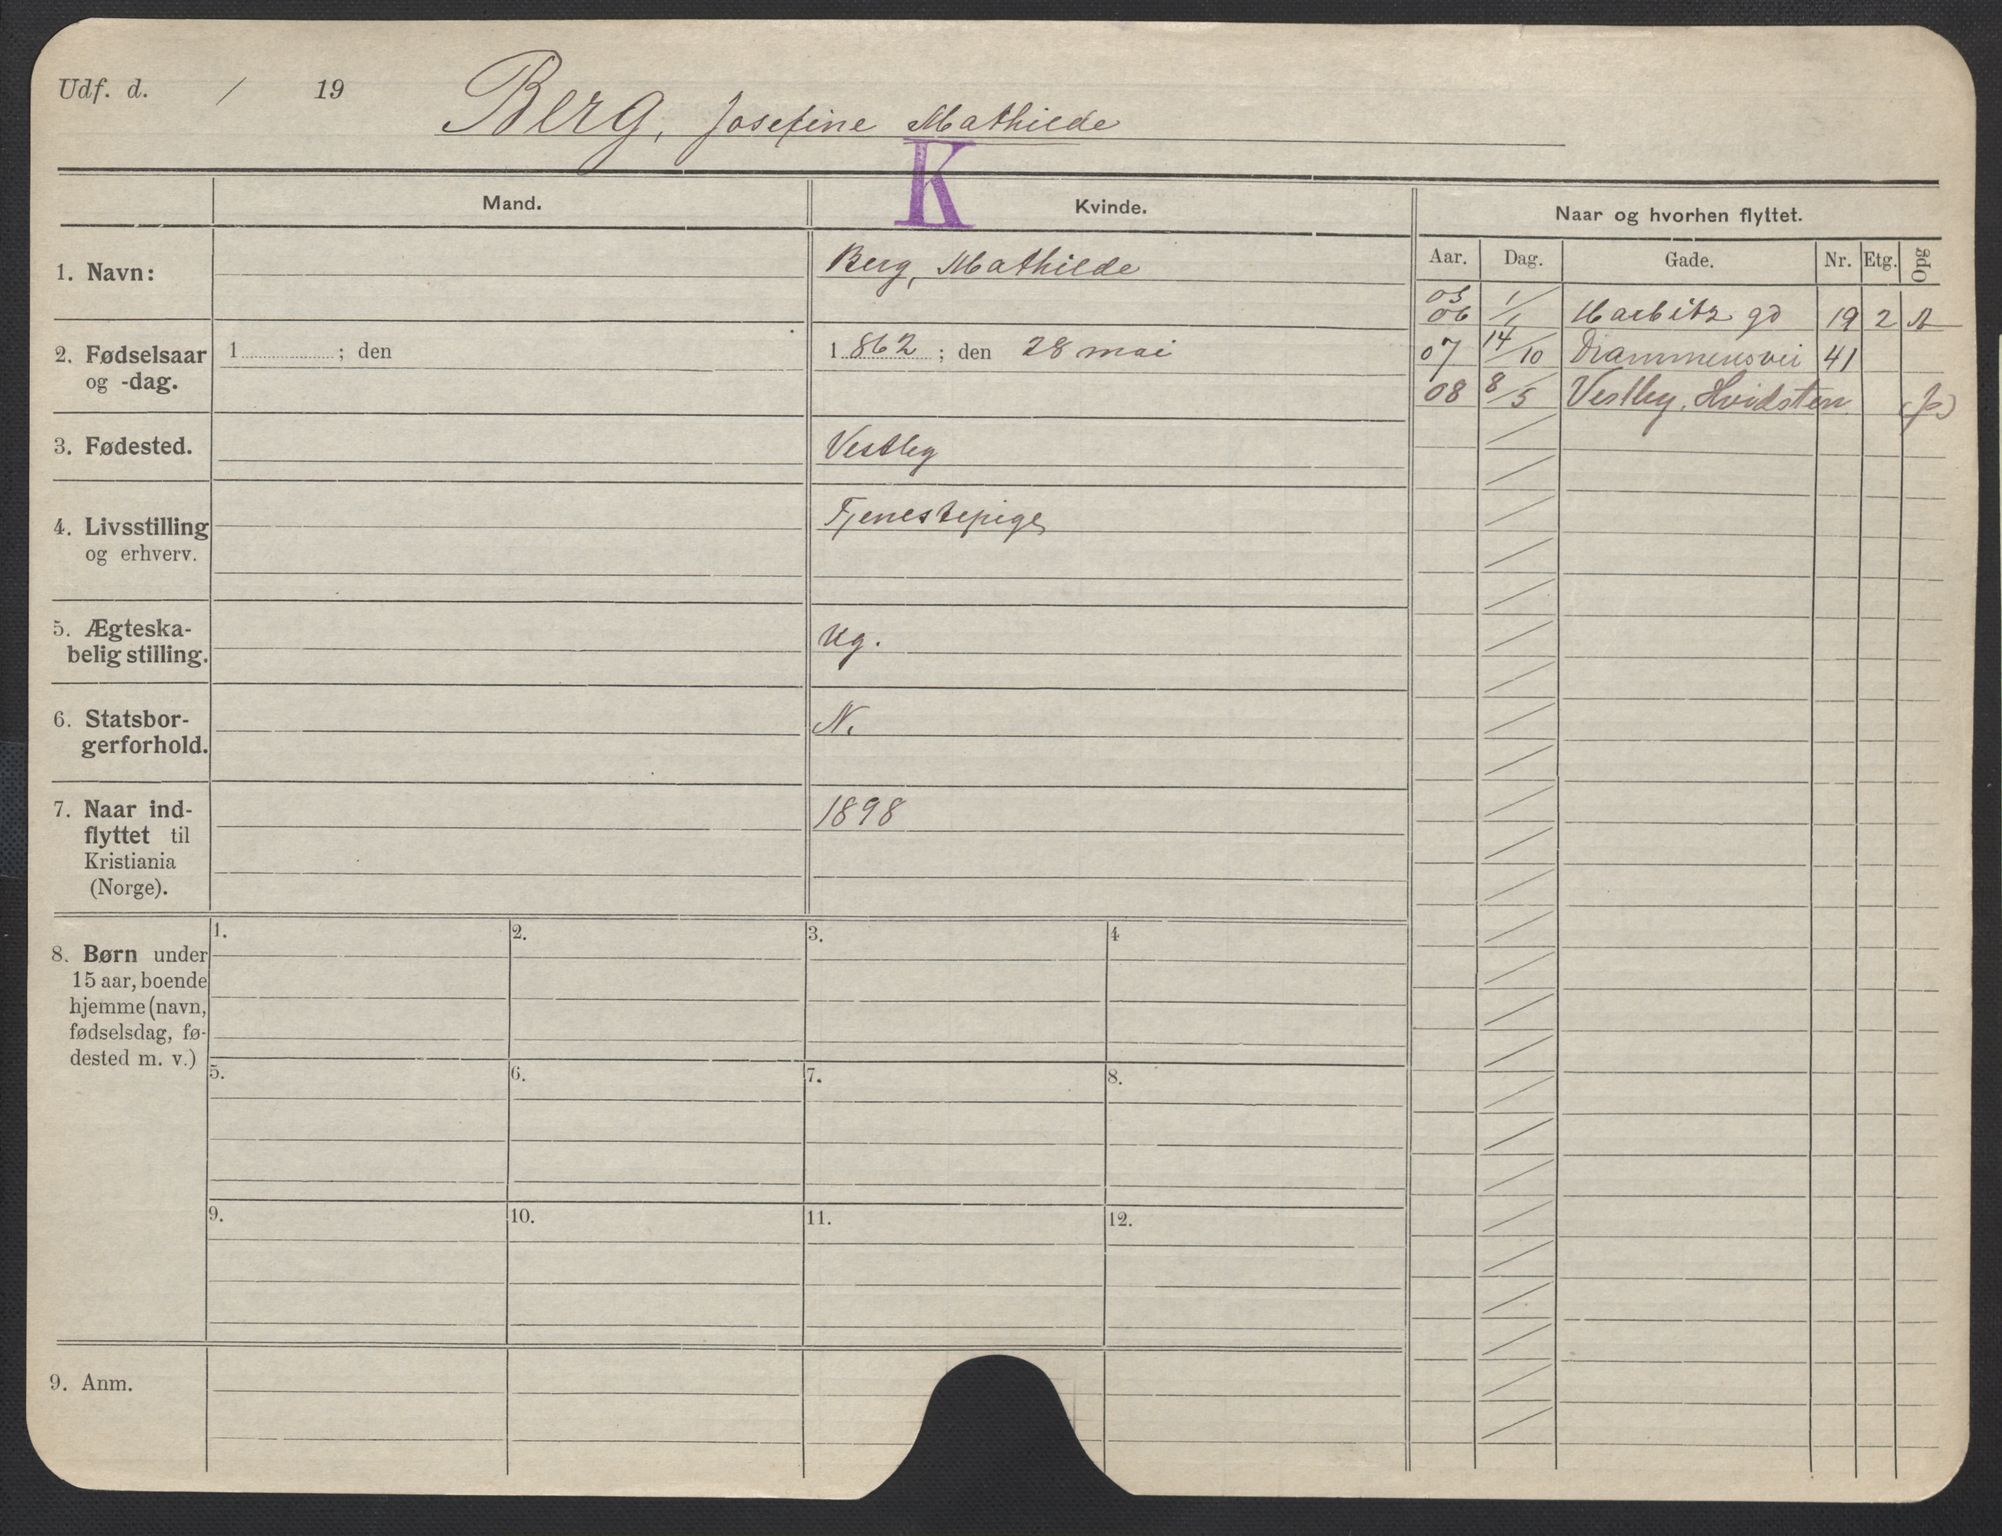 Udf. d. / 19
Berg, Josefine Mathilde
K
Mand.
Kvinde.
Naar og hvorhen flyttet.
Aar. Dag. Gade. Nr. Etg. Opg
1. Navn:
Berg, Mathilde
05
06 1/1 Harbitz gd 19 2 A
2. Fødselsaar
og -dag.
1 ; den
1 862 ; den 28 mai
07 14/10 Drammensvei 41
08 8/5 Vestby, Hvidsten
3. Fødested.
Vestby
4. Livsstilling
og erhverv.
Tjenestepige
5. Ægteska-
belig stilling.
Ug.
6. Statsbor-
gerforhold.
N.
7. Naar ind-
flyttet til
Kristiania
(Norge).
1898
8. Børn under
15 aar, boende
hjemme (navn,
fødselsdag, fø-
dested m. v.)
1. 2. 3. 4
5. 6. 7. 8.
9. 10. 11. 12.
9. Anm.